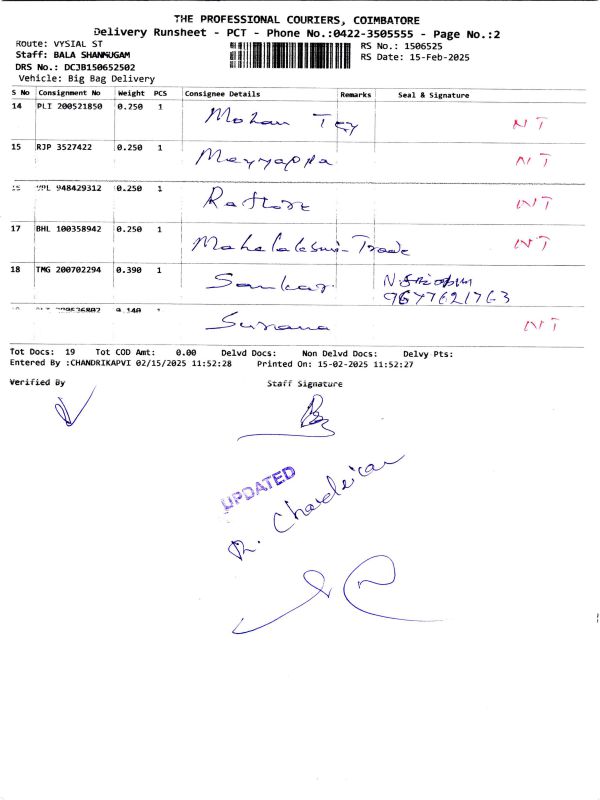 THE PROFESSIONAL COURIERS, COIMBATORE
Delivery Runsheet - PCT - Phone No.:0422-3505555 - Page No.:2
Route: VYSIAL ST RS No.: 1506525
Staff: BALA SHANMUGAM RS Date: 15-Feb-2025
DRS No.: DCJB150652502
Vehicle: Big Bag Delivery
S No Consignment No Weight PCS Consignee Details Remarks Seal & Signature
14 PLI 200521850 0.250 1 Mohan Tex NT
15 RJP 3527422 0.250 1 Meyyappa NT
948429312 0.250 1 NT
17 BHL 100358942 0.250 1 Mahalakshmi Trade NT
18 TMG 200702294 0.390 1 Sankar
9677621763
0.140 1 Surana NT
Tot Docs: 19 Tot COD Amt: 0.00 Delvd Docs: Non Delvd Docs: Delvy Pts:
Entered By :CHANDRIKAPVI 02/15/2025 11:52:28 Printed On: 15-02-2025 11:52:27
Verified By Staff Signature
UPDATED